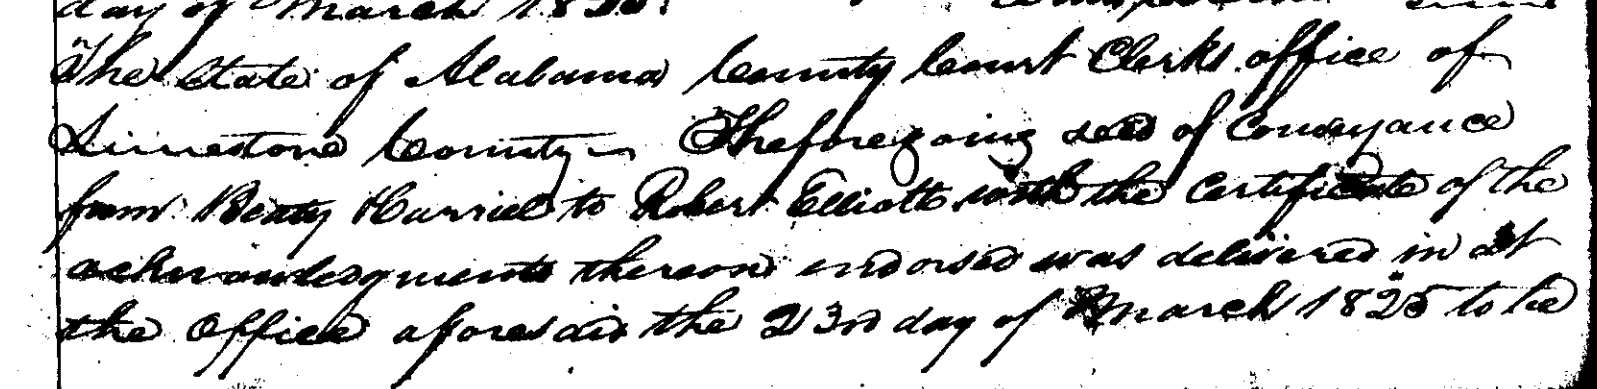 day of March 18
The State of Alabama County Court Clerks office of
Limestone County The foregoing deed of Conveyance
from Beaty Harriel to Robert Elliott with the Certificate of the
acknowledgments thereon endorsed was delivered in at
the Office aforesaid the 23rd day of March 1825 to be